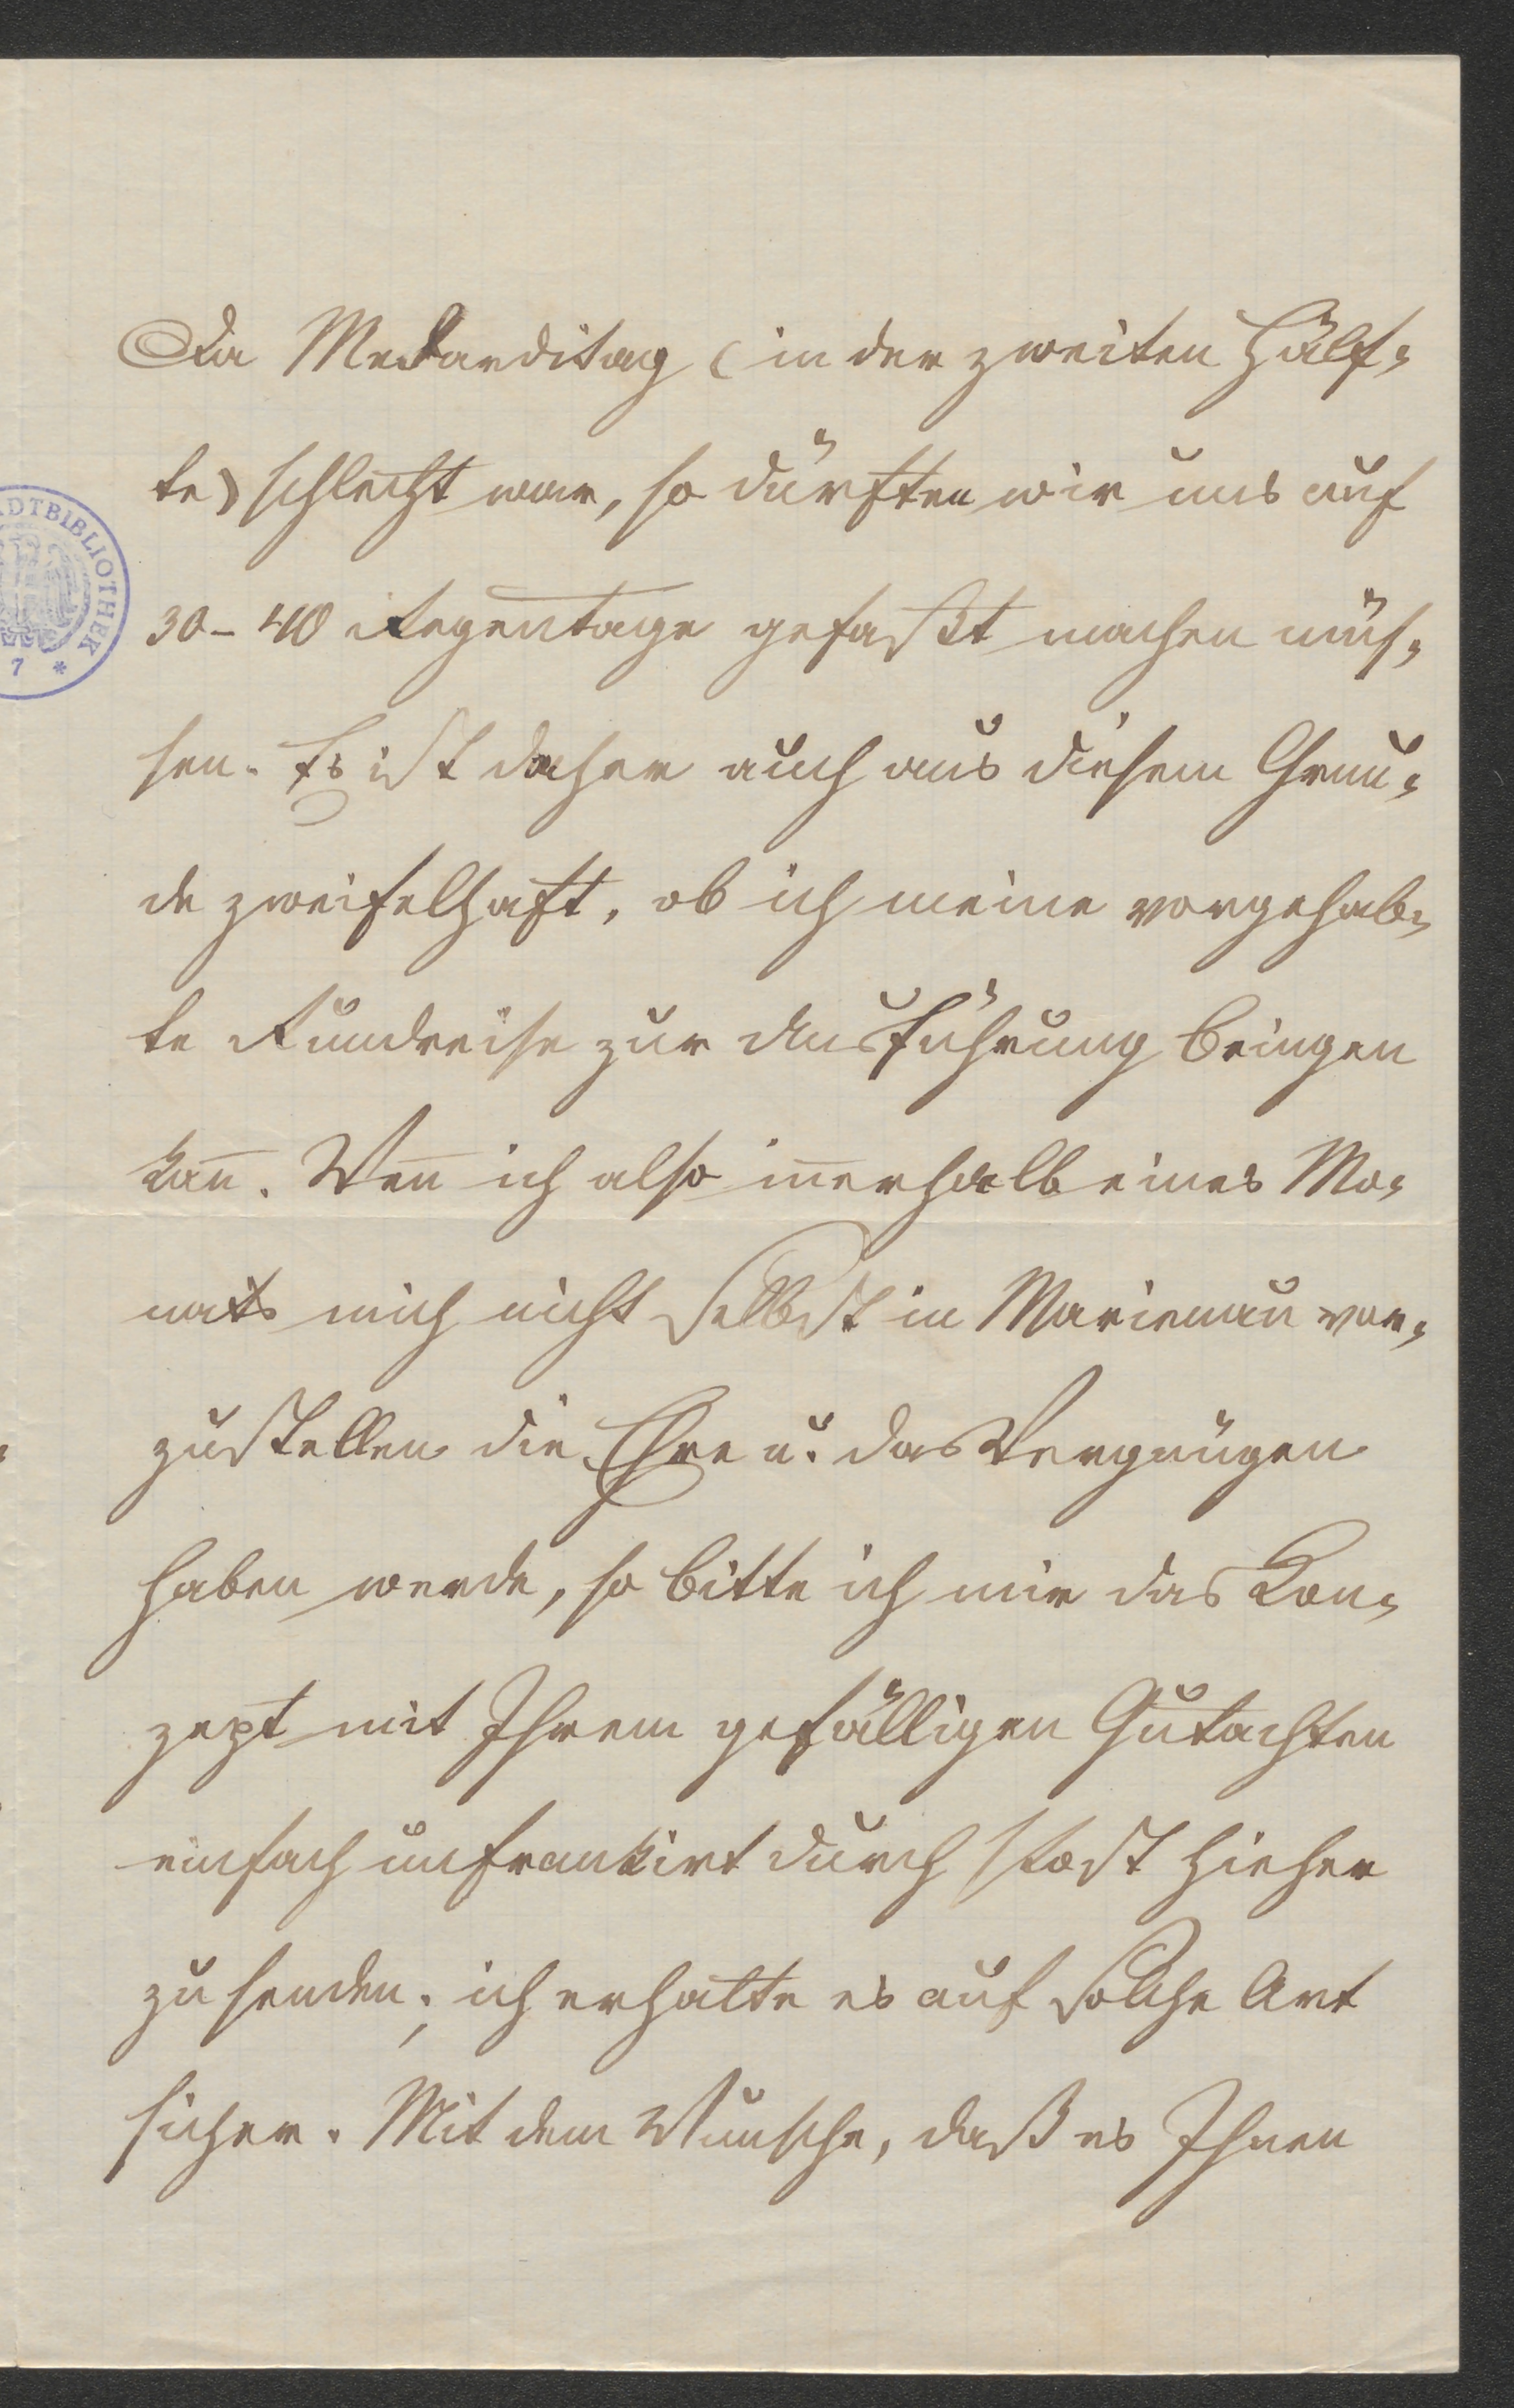 Da Medarditag (in der zweiten Hälf-
te) schlecht war, so dürften wir uns auf
30-40 Regentage gefaßt machen müs-
sen. Es ist daher auch aus diesem Grun-
de zweifelhaft, ob ich meine vorgehab-
te Rundreise zur Ausführung bringen
kan̅. Wen̅ ich also in̅erhalb eines Mo-
nats mich nicht selbst in Marienau vor-
zustellen die Ehre u. das Vergnügen
haben werde, so bitte ich mir das Kon-
zept mit Ihrem gefälligen Gutachten
einfach unfrankirt durch Post hieher
zu senden; ich erhalte es auf solche Art
sicher. Mit dem Wunsche, daß es Ihnen
ADTBIBLIOTHEK
7 *